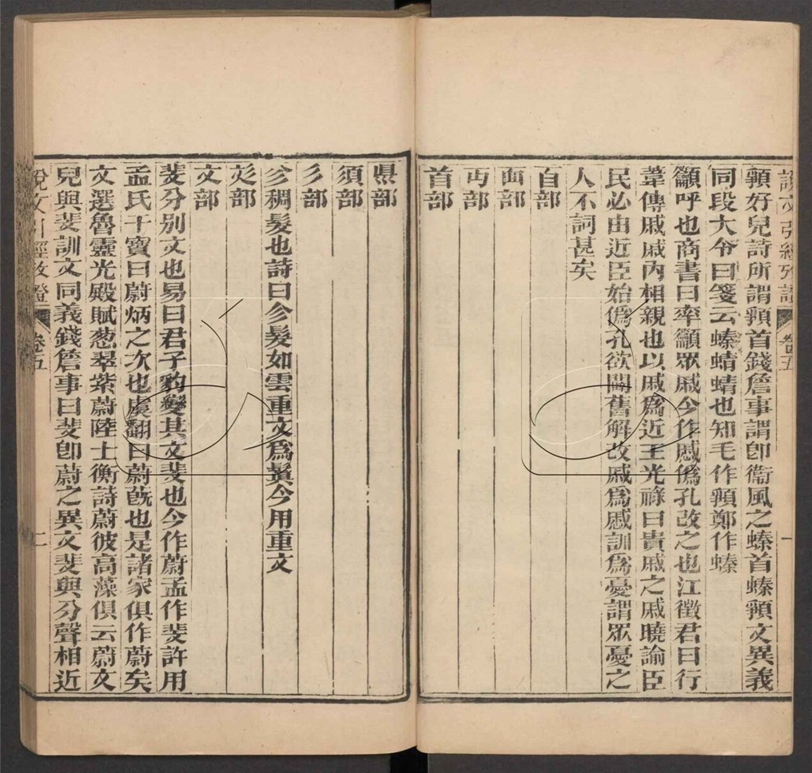 頛好皃詩所謂頛首錢詹事謂卽衞風之螓首螓頛文異義
同段大令曰箋云螓蜻蜻也知毛作頛鄭作螓
籲呼也商書曰率籲眾戚今作慼僞孔改之也江徵君曰行
葦傳戚戚內相親也以戚爲近王光祿曰貴戚之戚曉諭臣
民必由近臣始僞孔欲闢舊解改戚爲慼訓爲憂謂眾憂之
人不詞甚矣
𦣻部
面部
丏部
首部
𥄉部
須部
彡部
㐱稠髮也詩曰㐱髮如雲重文爲鬒今用重文
彣部
文部
斐分別文也易曰君子豹變其文斐也今作蔚孟作斐許用
孟氏干寶曰蔚炳之次也虞翻曰蔚蔇也是諸家俱作蔚矣
文選魯靈光殿賦葱翠紫蔚陸士衡詩蔚彼高藻俱云蔚文
皃與斐訓文同義錢詹事曰斐卽蔚之異文斐與分聲相近
說文引經攷證
卷五
二